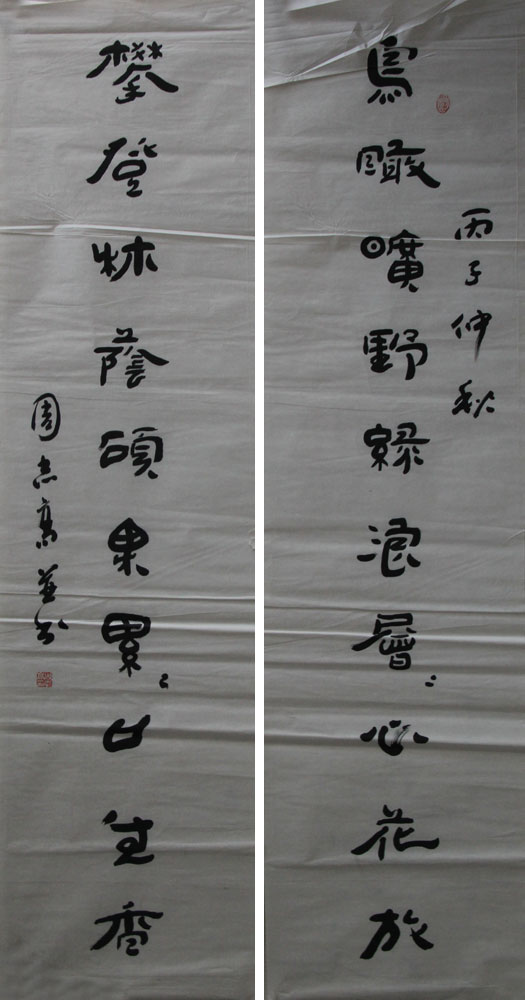 丙子仲秋
鳥瞰曠野綠浪層〻心花放
攀登林蔭碩果累〻口生香
周志高并书